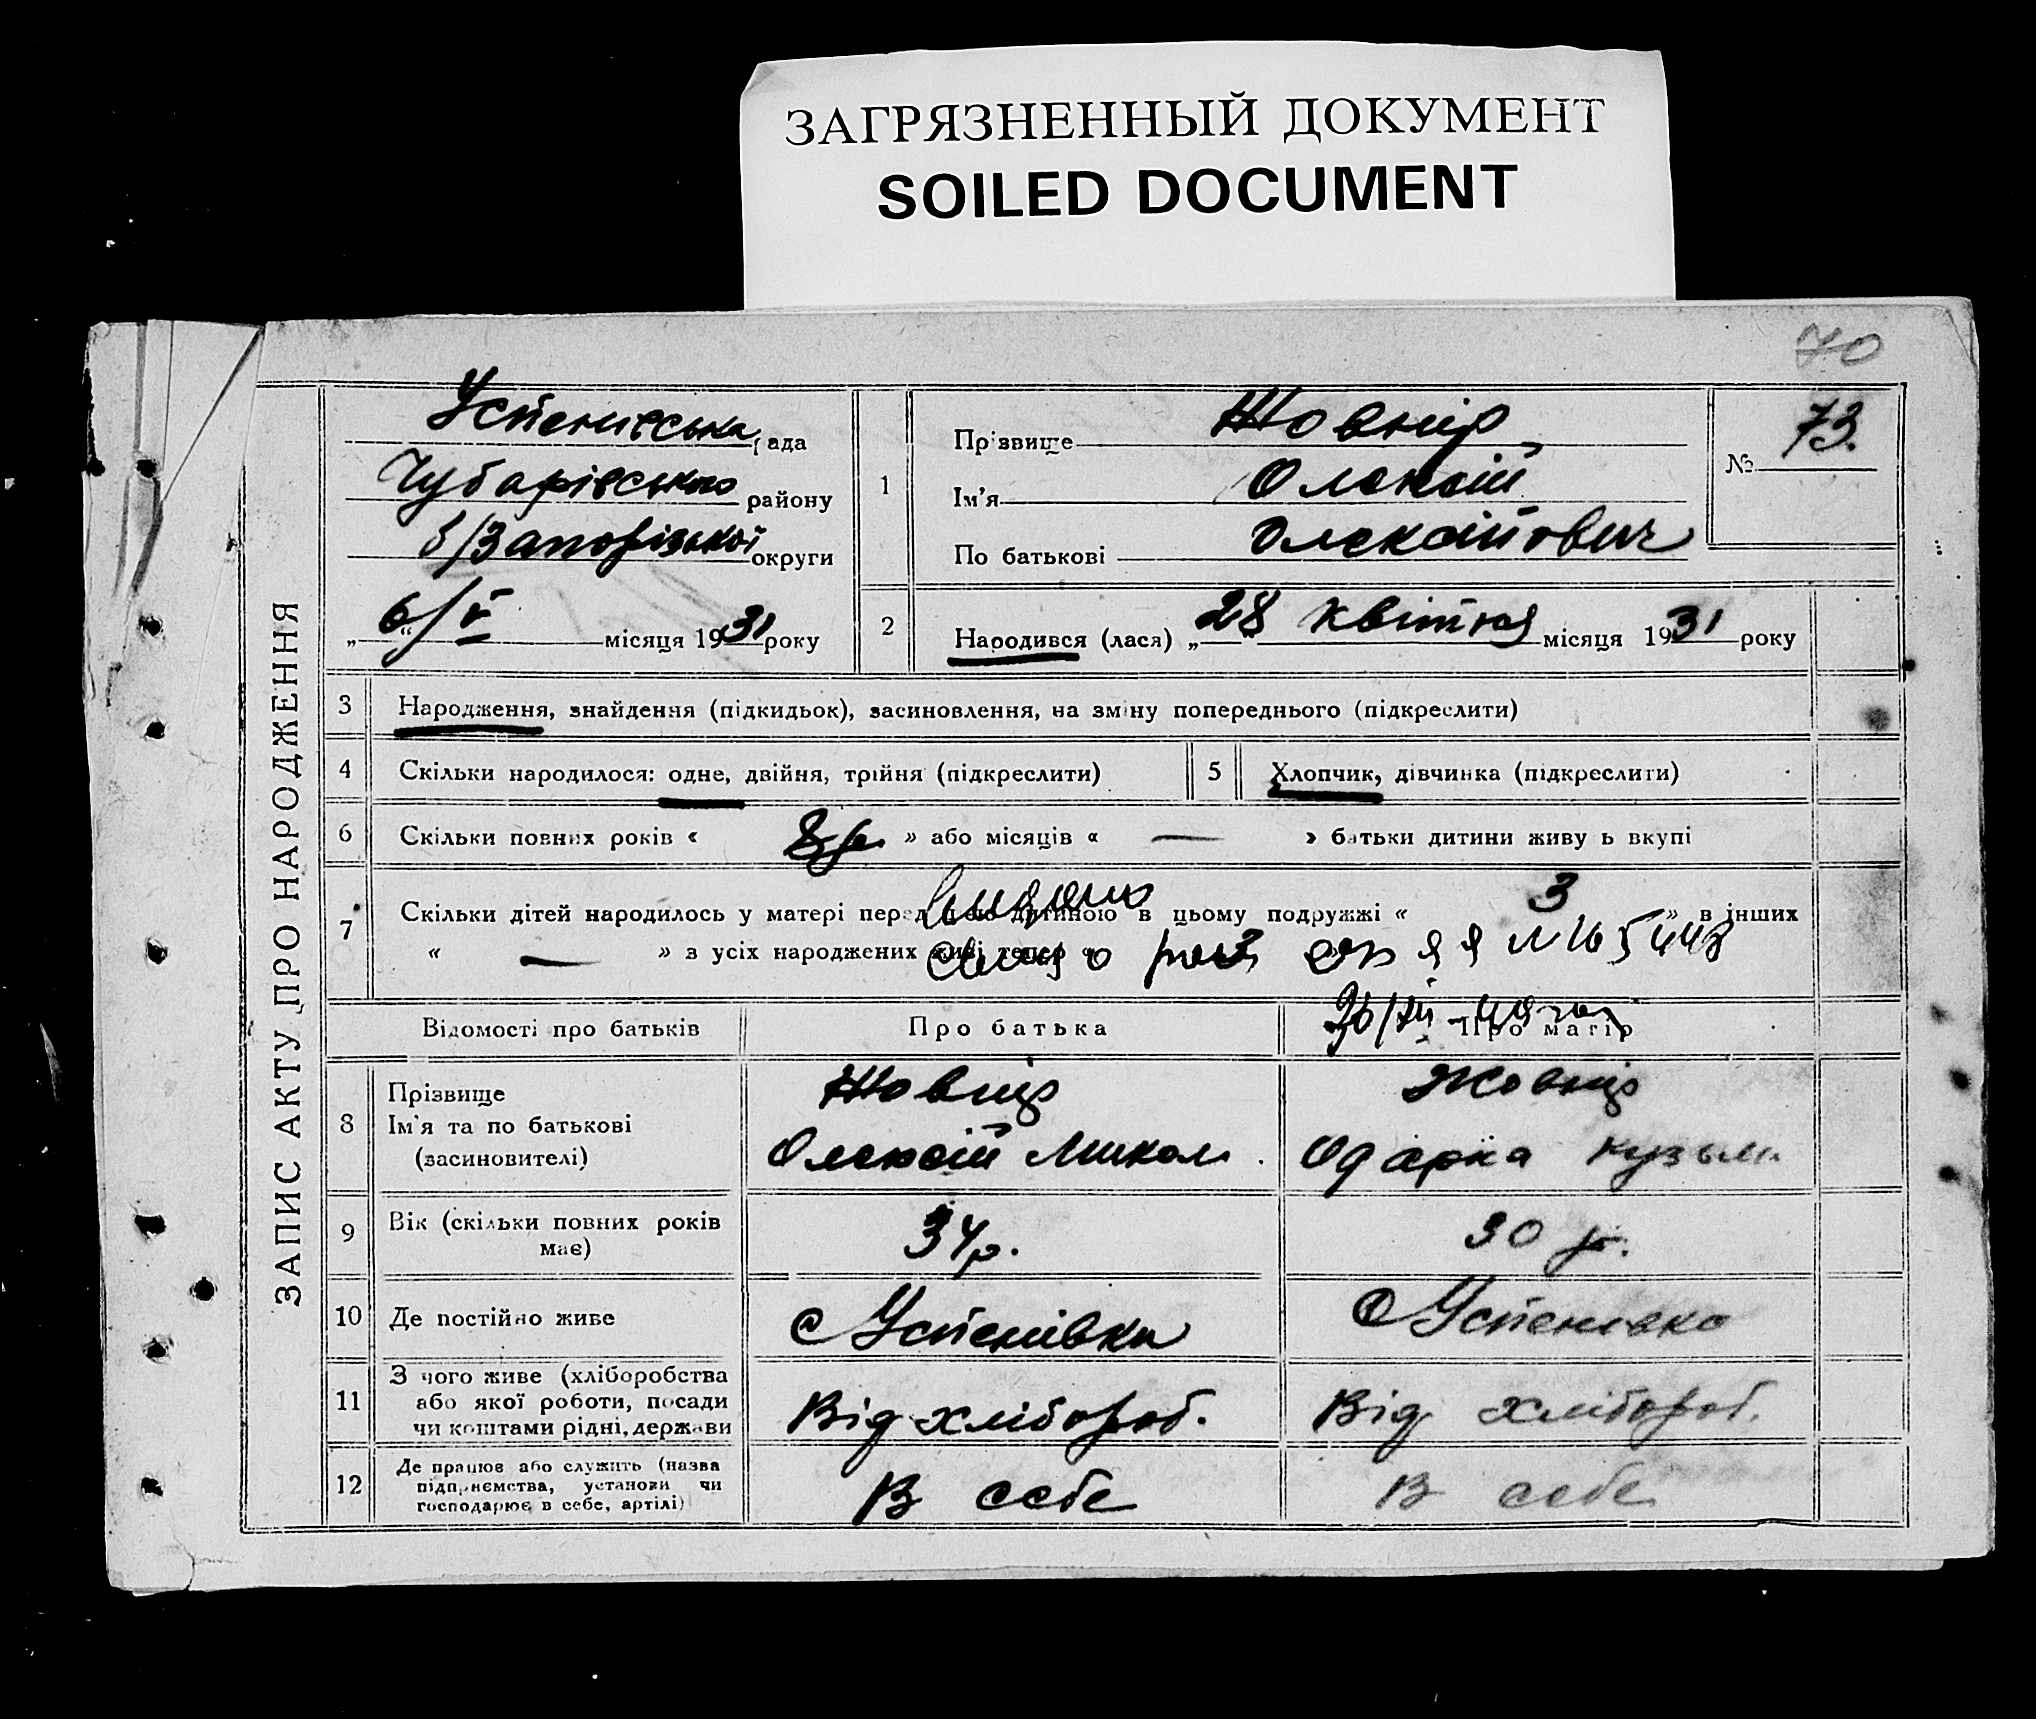 ЗАГРЯЗНЕННЫЙ ДОКУМЕНТ
SOILED DOCUMENT
70
ЗАПИС АКТУ ПРО НАРОДЖЕННЯ
Успенивська рада
Чубарівського району
б/Запорізької округи
„6/V“ місяця 1931 року
1
Прізвище Жовнір
Ім'я Олексій
По батькові Олексійович
№ 73.
2
Народився (лася) „28“ квітня місяця 1931 року
3 Народження, знайдення (підкидьок), засиновлення, на зміну попереднього (підкреслити)
4 Скільки народилося: одне, двійня, трійня (підкреслити)
5 Хлопчик, дівчинка (підкреслити)
6 Скільки повних років « 8 р. » або місяців « — » батьки дитини живуть вкупі
7 Скільки дітей народилось у матері перед цією дитиною в цьому подружжі « 3 » в інших
« — » з усіх народжених живі тепер « 3
Видано
Відомості про батьків
Про батька
Про матір
8 Прізвище
Ім'я та по батькові
(засиновителі)
Жовнір
Олексій Микол.
Жовнір
Одарка Кузьм.
9 Вік (скільки повних років
має)
34 р.
30 р.
10 Де постійно живе
с Успенівка
с Успенівка
11 З чого живе (хліборобства
або якої роботи, посади
чи коштами рідні, держави
Від хлібороб.
Від хлібороб.
12 Де працює або служить (назва
підприємства, установи чи
господарює в себе, артілі)
В себе
В себе